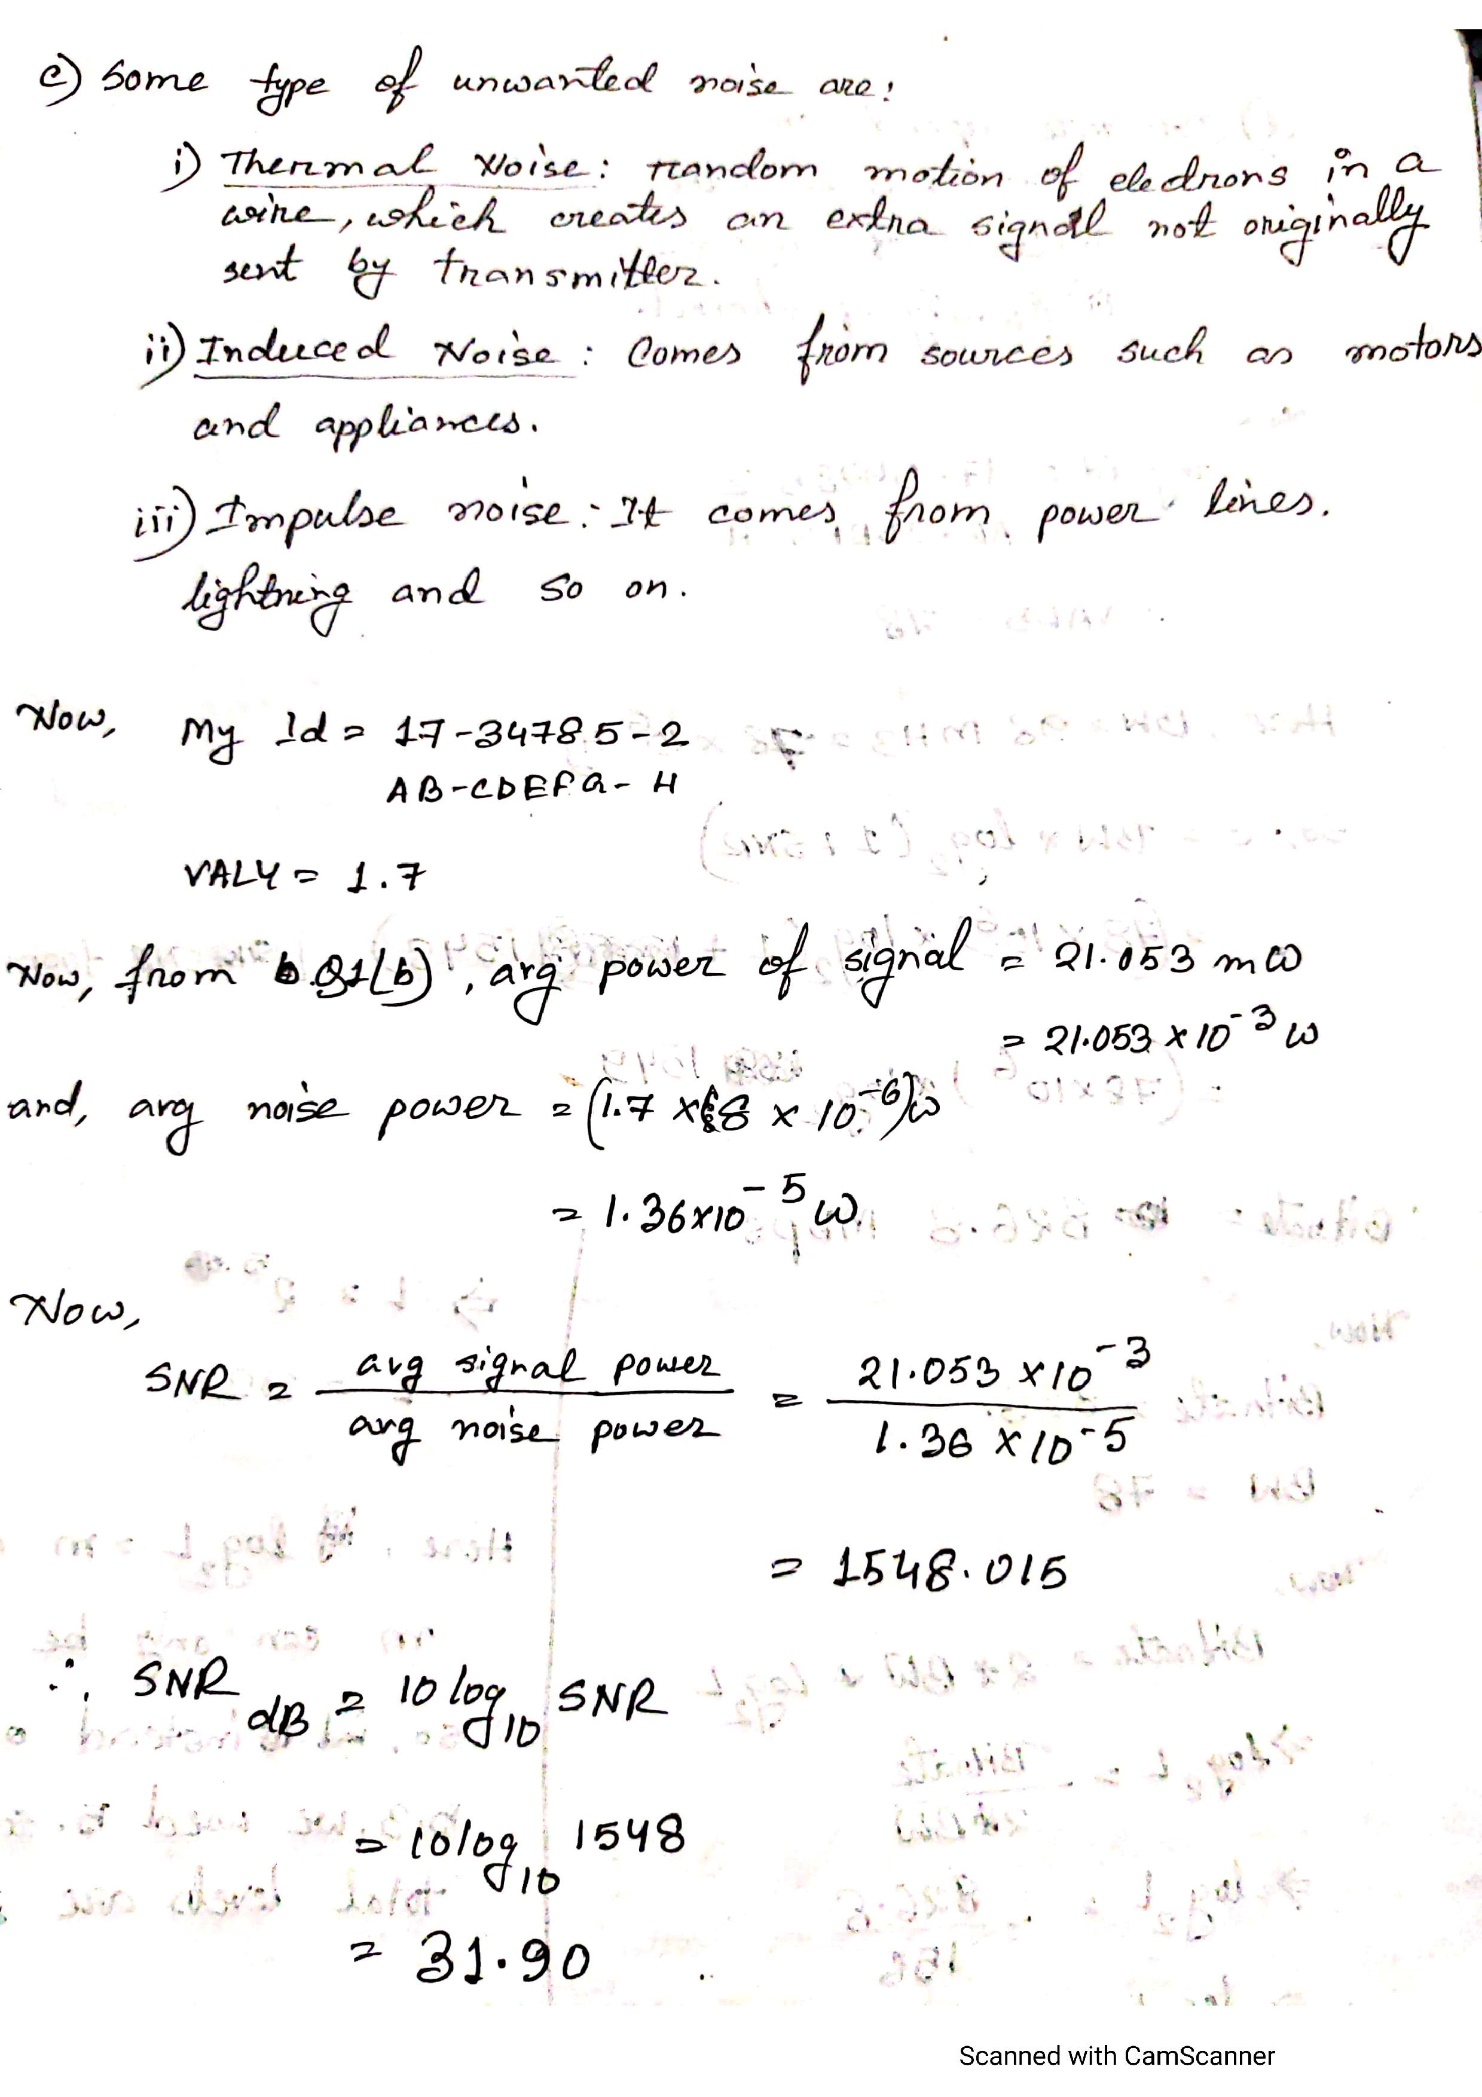 c) Some type of unwanted noise are:
i) Thermal Noise: random motion of electrons in a
wire, which creates an extra signal not originally
sent by transmitter.
ii) Induced Noise: Comes from sources such as motors
and appliances.
iii) Impulse noise: It comes from power lines.
lightning and so on.
Now, My Id = 17-34785-2
AB-CDEFG-H
VALY = 1.7
Now, from Q1(b), avg power of signal = 21.053 mW
= 21.053 × 10^-3 W
and, avg noise power = (1.7 × 8 × 10^-6) W
= 1.36×10^-5 W.
Now,
SNR = avg signal power / avg noise power = 21.053 ×10^-3 / 1.36 ×10^-5
= 1548.015
∴ SNR_dB = 10 log_10 SNR
= 10 log_10 1548
= 31.90
Scanned with CamScanner